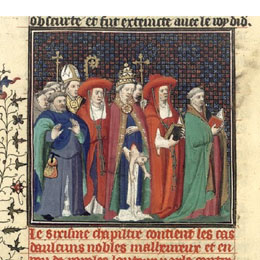 obscurte et fut extincte auec le roy did.
Le sixiesme chapiltre contient les cas
daulcuns nobles malheureux et en